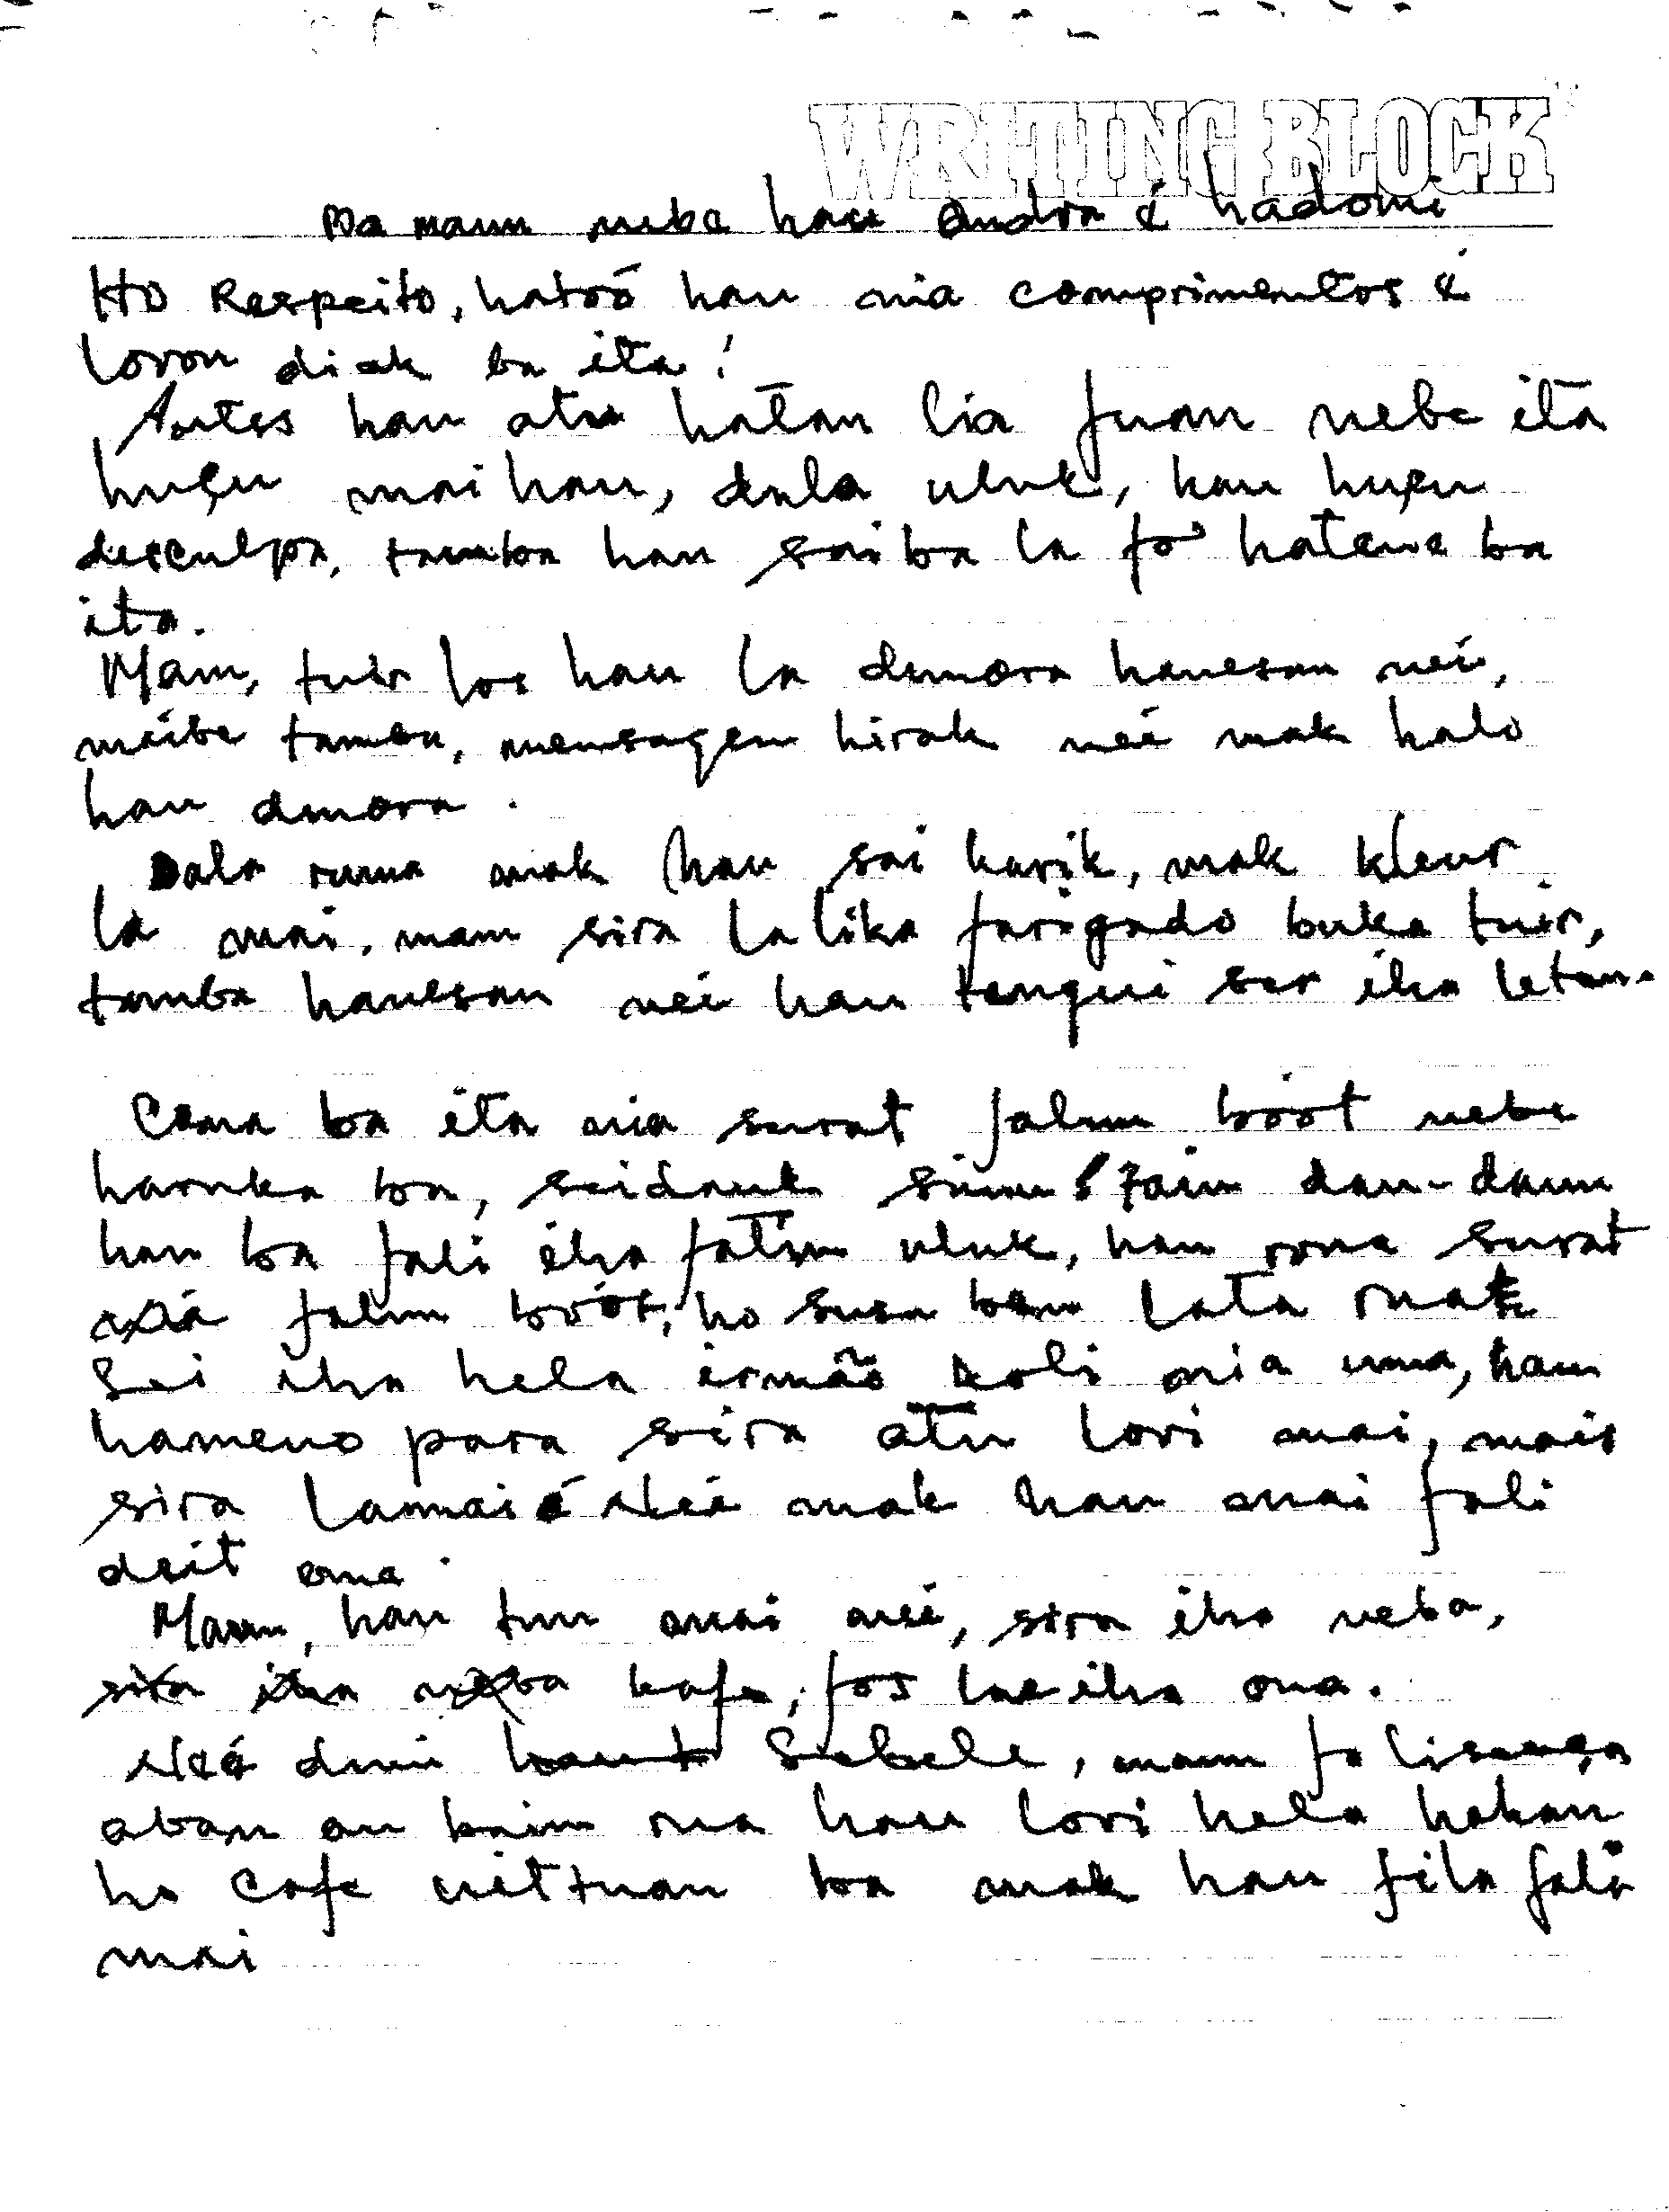 WRITING BLOCK
Ba maun nebe hau é hadomi
HO Respeito, hatoó hau nia comprimentos é
loron diak ba ita!
Antes hau atu hatan lia fuan nebe ita
huçu mai hau, dala uluk, hau huçu
desculpa, tamba hau sai ba la fó hatene ba
ita.
Mam, tuir los hau la demora hanesan neé,
meibe tamba, mensagen hirak neé mak halo
hau demora.
Dala ruma mak hau sai karik, mak kleur
la mai, mam sira la lika buka tuir,
tamba hanesan neé hau tenqui ser iha letен.
Cona ba ita nia surat falun boót nebe
haruka ba, seidauk simu dau-daun
hau ba fali iha fatin uluk, hau rona surat
falun boót, ho lata ruak
sei iha hela irmão Koli nia uma, hau
hameno para sira atu lori mai, mais
sira lamai é neé mak hau mai fali
deit ona.
Maun, hau tun mai neé, sira iha neba,
kafe, fos lae iha ona.
Neé duni Sebele, maum fo lisença
aban ou bain rua hau lori hela hahan
ho cafe uittuan ba mak hau fila fali
mai